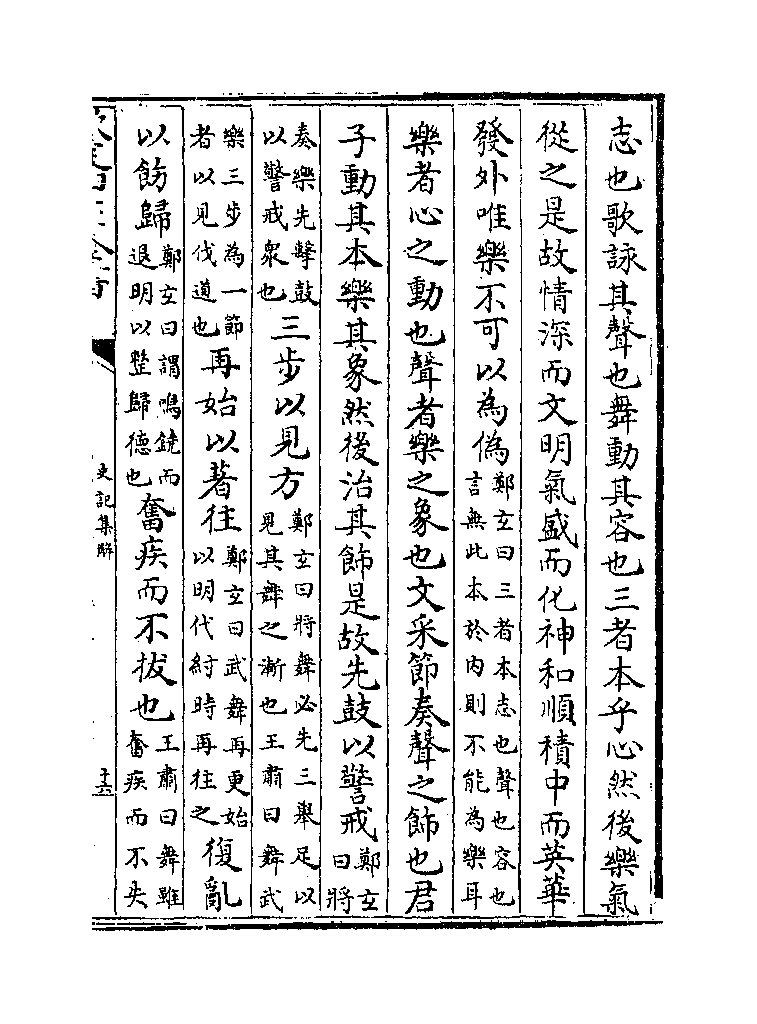 志也歌詠其聲也舞動其容也三者本乎心然後樂氣
從之是故情深而文明氣盛而化神和順積中而英華
發外唯樂不可以為偽鄭玄曰三者本志也聲也容也言無此本於內則不能為樂耳
樂者心之動也聲者樂之象也文采節奏聲之飾也君
子動其本樂其象然後治其飾是故先鼓以警戒鄭玄曰將
奏樂先擊鼓以警戒衆也三步以見方鄭玄曰將舞必先三舉足以見其舞之漸也王肅曰舞武
樂三步為一節者以見伐道也再始以著往鄭玄曰武舞再更始以明代紂時再往之復亂
以飭歸鄭玄曰謂鳴鐃而退明以整歸德也奮疾而不拔也王肅曰舞雖奮疾而不失
史記集解
十六